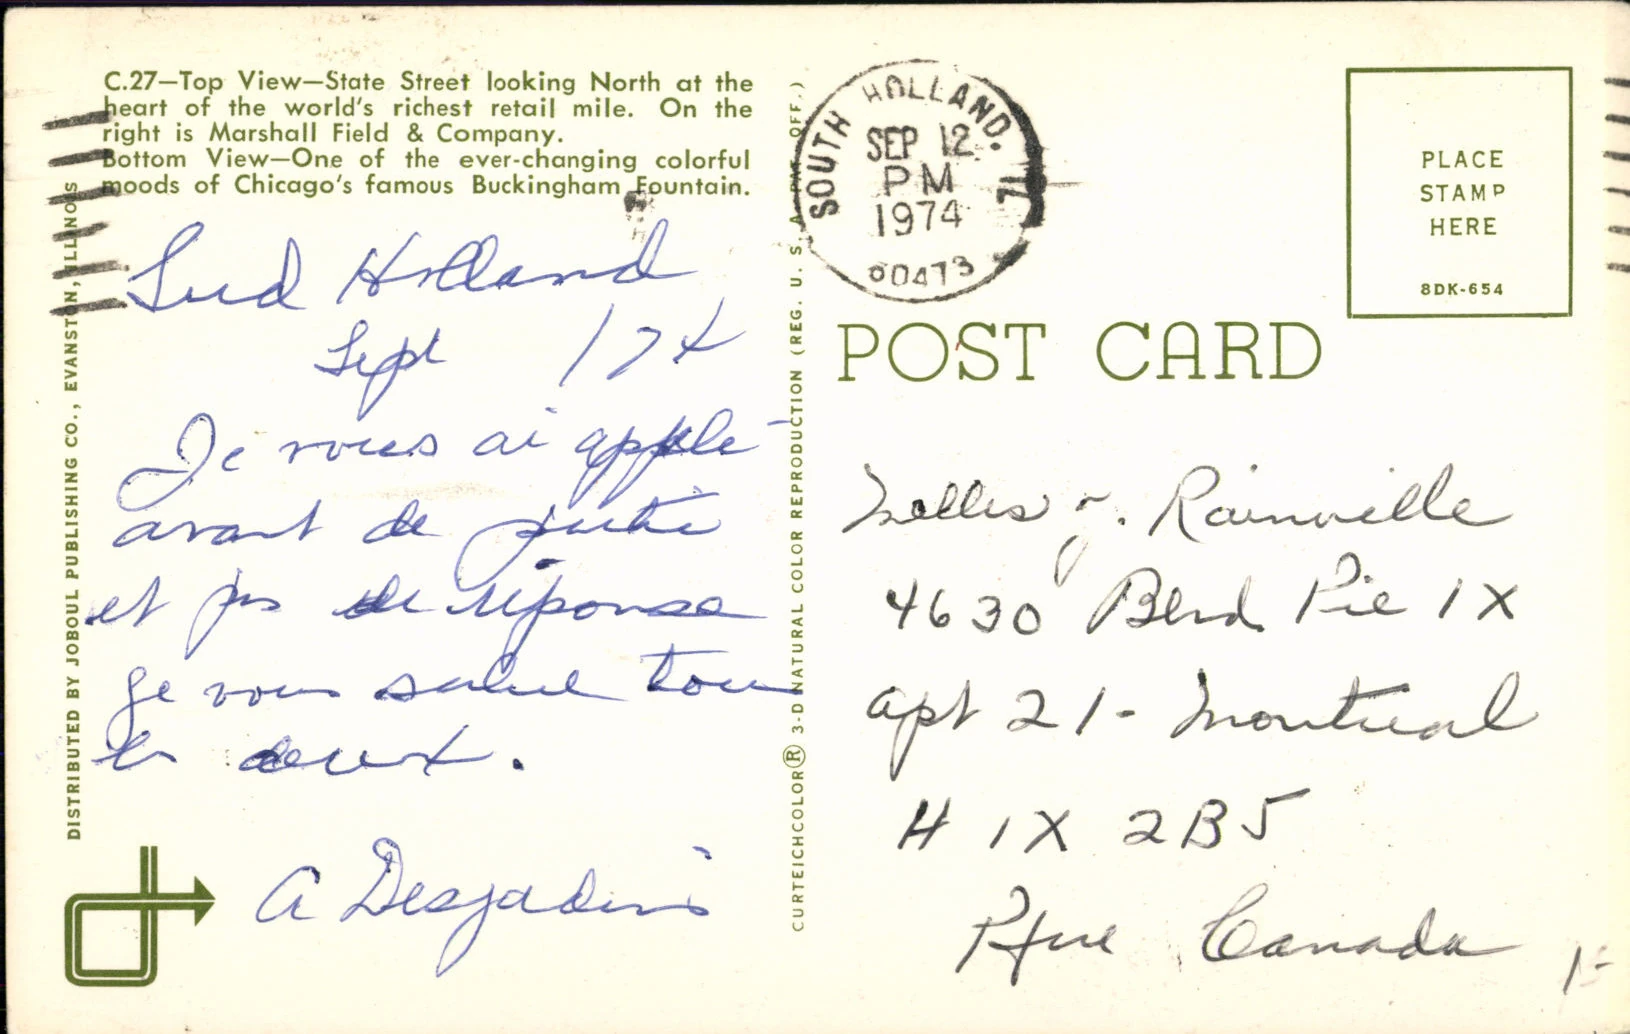 C.27—Top View—State Street looking North at the
heart of the world's richest retail mile. On the
right is Marshall Field & Company.
Bottom View—One of the ever-changing colorful
moods of Chicago's famous Buckingham Fountain.
DISTRIBUTED BY JOBOUL PUBLISHING CO., EVANSTON, ILLINOIS
Sud Holland
Sept 174
Je vous ai applé
avant de
et pas de réponse
Je vous salue tous
les deux.
A Desjadins
CURTEICHCOLOR® 3-D NATURAL COLOR REPRODUCTION (REG. U. S. A. PAT. OFF.)
SOUTH HOLLAND. IL
SEP 12
PM
1974
60473
PLACE
STAMP
HERE
8DK-654
POST CARD
Rainville
4630 Blvd Pie IX
apt 21- Montreal
H 1X 2B5
Canada